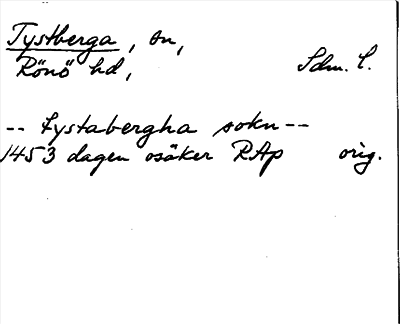 Tystberga, sn,
Rönö hd, Sdm. l.
-- tystabergha sokn --
1453 dagen osäker RAp orig.